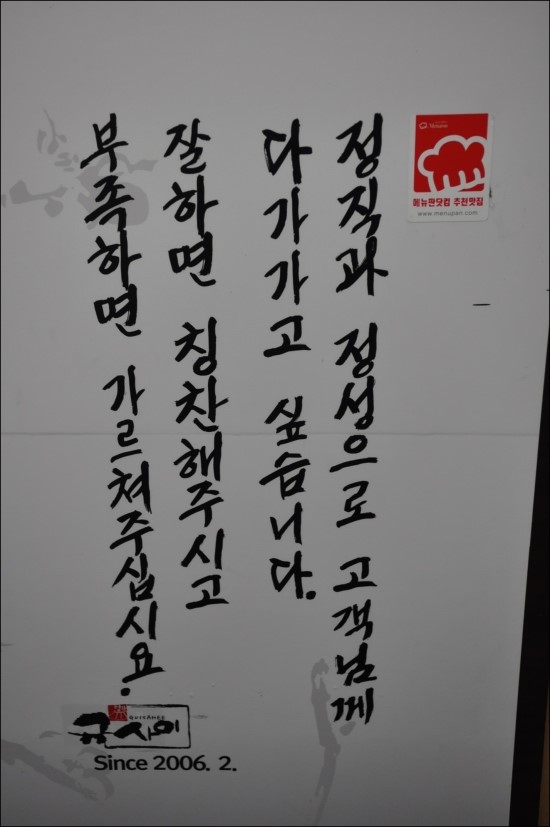 정직과 정성으로 고객님께
다가가고 싶습니다.
잘하면 칭찬해주시고
부족하면 가르쳐주십시요.
메뉴판닷컴 추천맛집
www.menupan.com
Since 2006. 2.